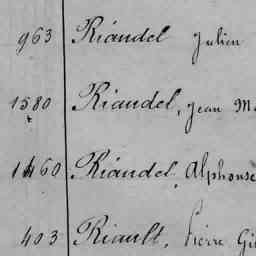 963 Riandel Julien
1580 Riandel, Jean
1460 Riandel, Alphonse
403 Riault, Pierre